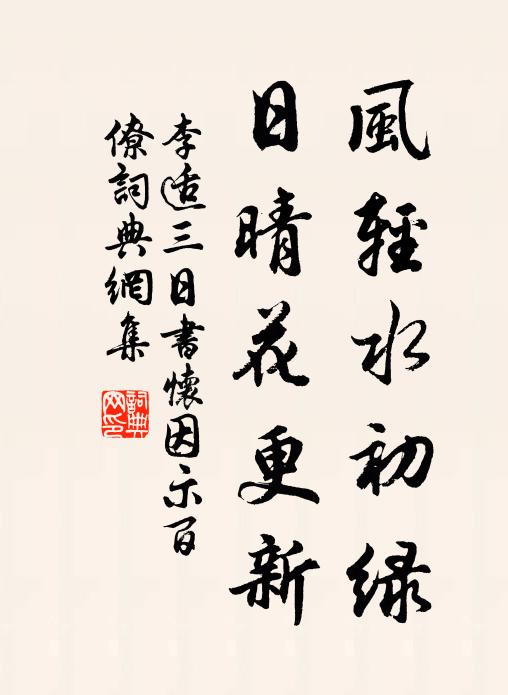 風輕水初緑
日晴花更新
李适三日書懷因示百
僚詞典網集
詞典
网印